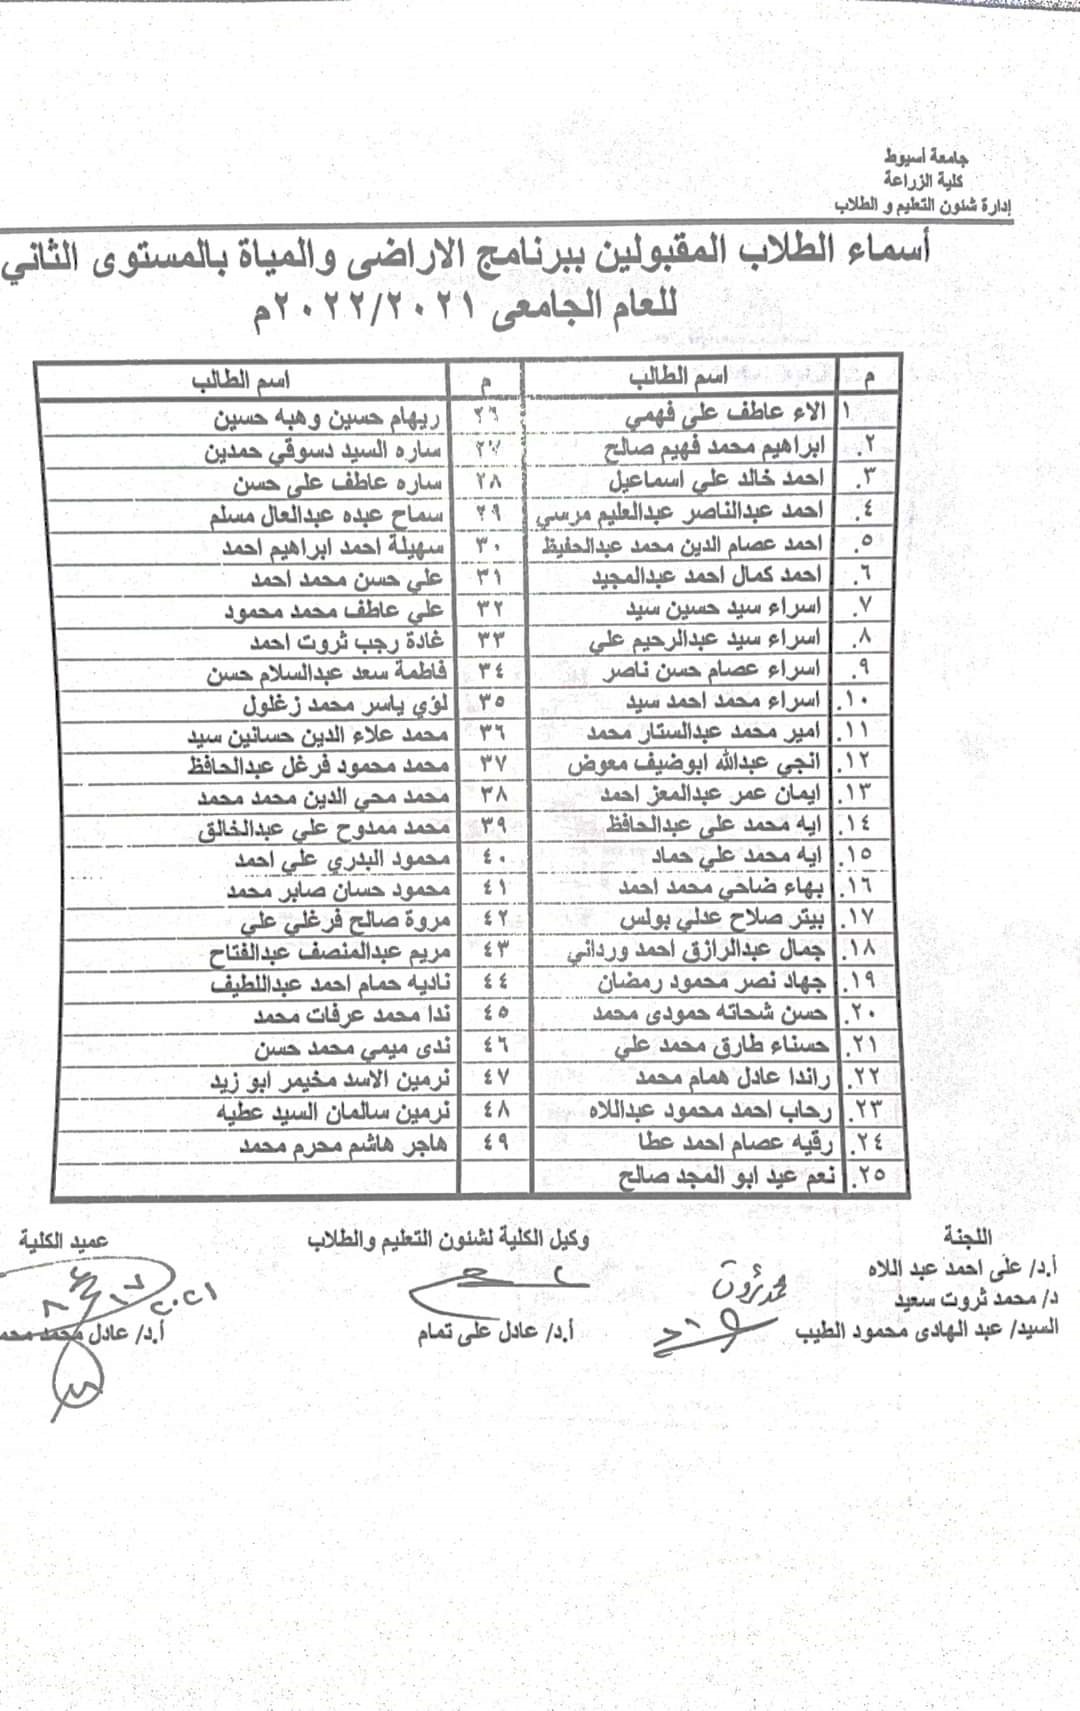 جامعة أسيوط
كلية الزراعة
إدارة شئون التعليم و الطلاب
أسماء الطلاب المقبولين ببرنامج الاراضى والمياة بالمستوى الثاني
للعام الجامعى ٢٠٢٢/٢٠٢١م
م اسم الطالب م اسم الطالب
١ الاء عاطف على فهمي ٢٦ ريهام حسين وهبه حسين
٢. ابراهيم محمد فهيم صالح ٢٧ ساره السيد دسوقي حمدين
٣. احمد خالد علي اسماعيل ٢٨ ساره عاطف على حسن
٤. احمد عبدالناصر عبدالعليم مرسي ٢٩ سماح عبده عبدالعال مسلم
٥. احمد عصام الدين محمد عبدالحفيظ ٣٠ سهيلة احمد ابراهيم احمد
٦. احمد كمال احمد عبدالمجيد ٣١ علي حسن محمد احمد
٧. اسراء سيد حسين سيد ٣٢ علي عاطف محمد محمود
٨. اسراء سيد عبدالرحيم علي ٣٣ غادة رجب ثروت احمد
٩. اسراء عصام حسن ناصر ٣٤ فاطمة سعد عبدالسلام حسن
١٠. اسراء محمد احمد سيد ٣٥ لؤي ياسر محمد زغلول
١١. امير محمد عبدالستار محمد ٣٦ محمد علاء الدين حسانين سيد
١٢. انجي عبدالله ابوضيف معوض ٣٧ محمد محمود فرغل عبدالحافظ
١٣. ايمان عمر عبدالمعز احمد ٣٨ محمد محي الدين محمد محمد
١٤. ايه محمد على عبدالحافظ ٣٩ محمد ممدوح علي عبدالخالق
١٥. ايه محمد علي حماد ٤٠ محمود البدري علي احمد
١٦. بهاء ضاحي محمد احمد ٤١ محمود حسان صابر محمد
١٧. بيتر صلاح عدلي بولس ٤٢ مروة صالح فرغلي علي
١٨. جمال عبدالرازق احمد ورداني ٤٣ مريم عبدالمنصف عبدالفتاح
١٩. جهاد نصر محمود رمضان ٤٤ ناديه حمام احمد عبداللطيف
٢٠. حسن شحاته حمودى محمد ٤٥ ندا محمد عرفات محمد
٢١. حسناء طارق محمد علي ٤٦ ندى ميمي محمد حسن
٢٢. راندا عادل همام محمد ٤٧ نرمين الاسد مخيمر ابو زيد
٢٣. رحاب احمد محمود عبداللاه ٤٨ نرمين سالمان السيد عطيه
٢٤. رقيه عصام احمد عطا ٤٩ هاجر هاشم محرم محمد
٢٥. نعم عيد ابو المجد صالح
اللجنة وكيل الكلية لشئون التعليم والطلاب عميد الكلية
أ.د/ على احمد عبد اللاه
د/ محمد ثروت سعيد محمد ثروت
السيد/ عبد الهادى محمود الطيب أ.د/ عادل على تمام أ.د/ عادل محمد محم